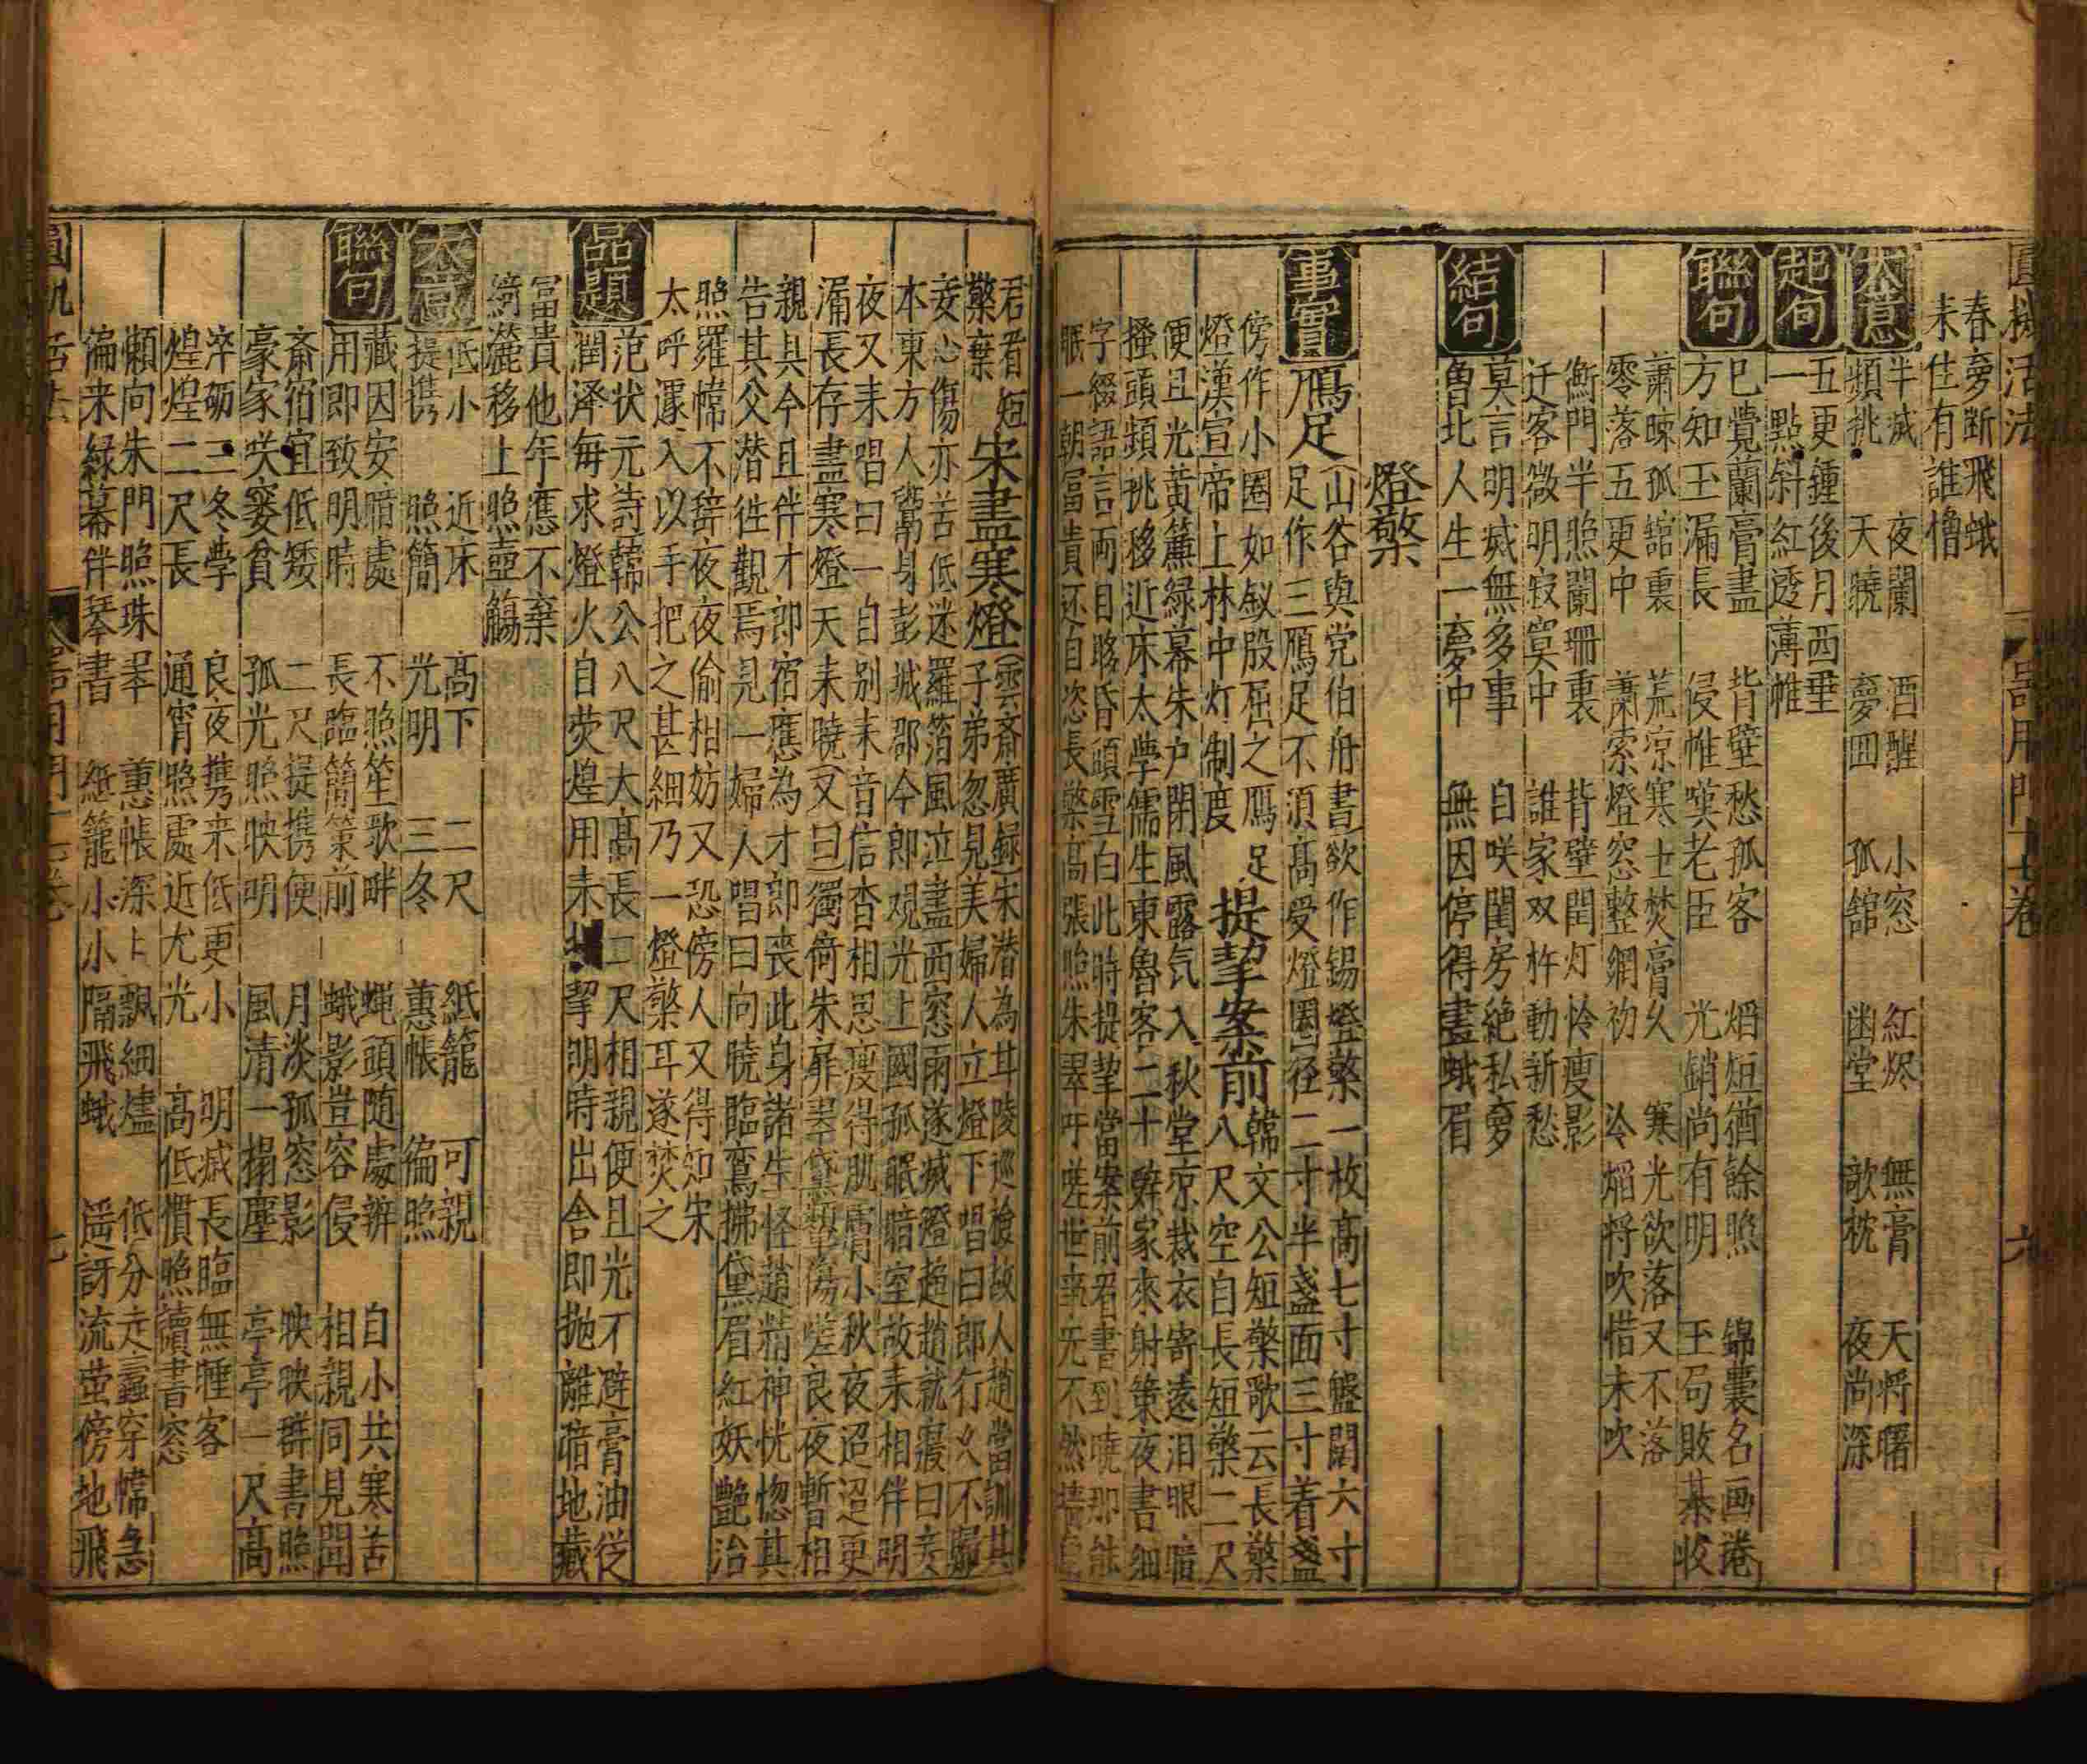 圓機活法 器用門十七卷 六
春夢断飛蛾
未佳有誰憎
大意
半滅 夜闌 酒醒 小窓 紅烬 無膏 天将曙
頻挑 天曉 夢囬 孤舘 幽堂 欹枕 夜尚深
起句
五更鍾後月西垂
一點斜紅透薄帷
聯句
已覺蘭膏盡 背壁愁孤客 熖短猶餘照 錦囊名画捲
方知玉漏長 侵帷嘆老臣 光銷尚有明 玉局敗棊收
蕭踈孤舘裏 荒凉寒士焚膏久 寒光欲落又不落
零落五更中 蕭索燈窓整網初 冷熖将吹惜未吹
衡門半照闌珊裏 背壁閏灯怜瘦影
迁客微明寂寞中 誰家双杵動新愁
結句
莫言明滅無多事 自咲閨房絶私夢
魯北人生一夢中 無因停得畫蛾眉
燈檠
事實
鴈足
山谷與党伯舟書欲作錫燈檠一枚高七寸盤闊六寸
足作三鴈足不須高受燈圈径二寸半盞面三寸着盞
傍作小圈如釵股屈之鴈足
燈漢宣帝上林中灯制度
提挈案前
韓文公短檠歌云長檠
八尺空自長短檠二尺
便且光黄簾緑幕朱户閉風露気入秋堂凉裁衣寄遠泪眼暗
搔頭頻挑移近床太學儒生東魯客二十辭家來射策夜書細
字綴語言両目眵昏頭雪白此時提挈當案前看書到曉那能
眠一朝富貴还自恣長檠高張照朱翠吁嗟世事无不然墻角
君看短
檠棄
宋盡寒燈
雲斎廣録宋潜為甘陵巡撿故人趙當訓其
子弟忽見美婦人立燈下唱曰郎行久不歸
妾心傷亦苦低迷羅箔風泣盡西窓雨遂滅燈趋趙就寢曰妾
本東方人鬻身彭城郡今郎観光上國孤眠暗室故来相伴明
夜又来唱曰一自别来音信杳相思瘦得肌膚小秋夜迢迢更
漏長存盡寒燈天来曉又曰獨倚朱扉翠黛顰傷嗟良夜暫相
親具今且伴才郎宿應為才郎丧此身諸生怪趙精神恍惚其
告其父潜徃觀焉見一婦人唱曰向曉臨鸞拂黛眉紅妖艶冶
照羅幃不辞夜夜偷相妨又恐傍人又得知宋
太呼遽入以手把之甚細乃一燈檠耳遂焚之
品題
范状元詩韓公八尺大高長二尺相親便且光不避膏油従
潤泽毎求燈火自荧煌用来挈朗時出舎即抛離暗地藏
冨貴他年應不棄
綺筵移上照壷觴
大意
低小 近床 高下 二尺 紙籠 可親
提携 照簡 光明 三冬 蕙帳 徧照
聯句
藏因安暗處 不照笙歌畔 蝇頭随處辨 自小共寒苦
用即致明時 長臨簡策前 蛾影豈容侵 相親同見聞
斎宿宜低矮 二尺提携便 月淡孤窓影 映映群書照
豪家咲窭貧 孤光照映明 風清一榻塵 亭亭一尺高
淬砺三冬學 良夜携来低更小 明滅長臨無睡客
煌煌二尺長 通宵照處近尤光 高低慣照讀書窓
懶向朱門照珠翠 蕙帳深上飄細燼 低分走蠹穿幃急
徧来緑幕伴琴書 紙籠小小隔飛蛾 遥訝流萤傍地飛